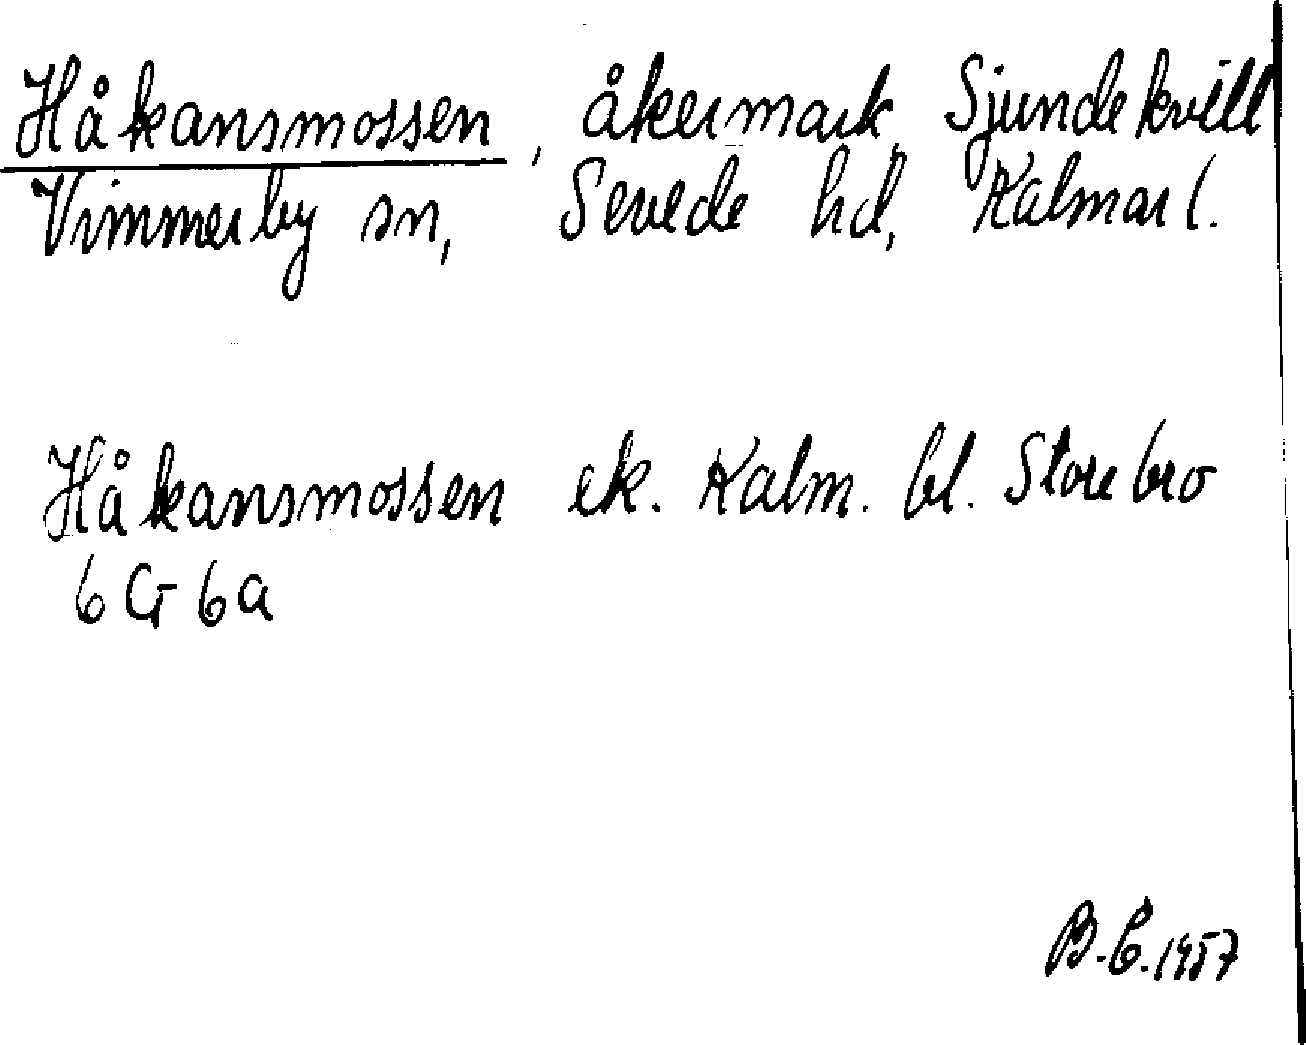 Håkansmossen, åkermark, Sjundekvill
Vimmerby sn, Sevede hd, Kalmar l.
Håkansmossen ek. Kalm. bl. Storebro
6 G 6 a
B.E. 1957